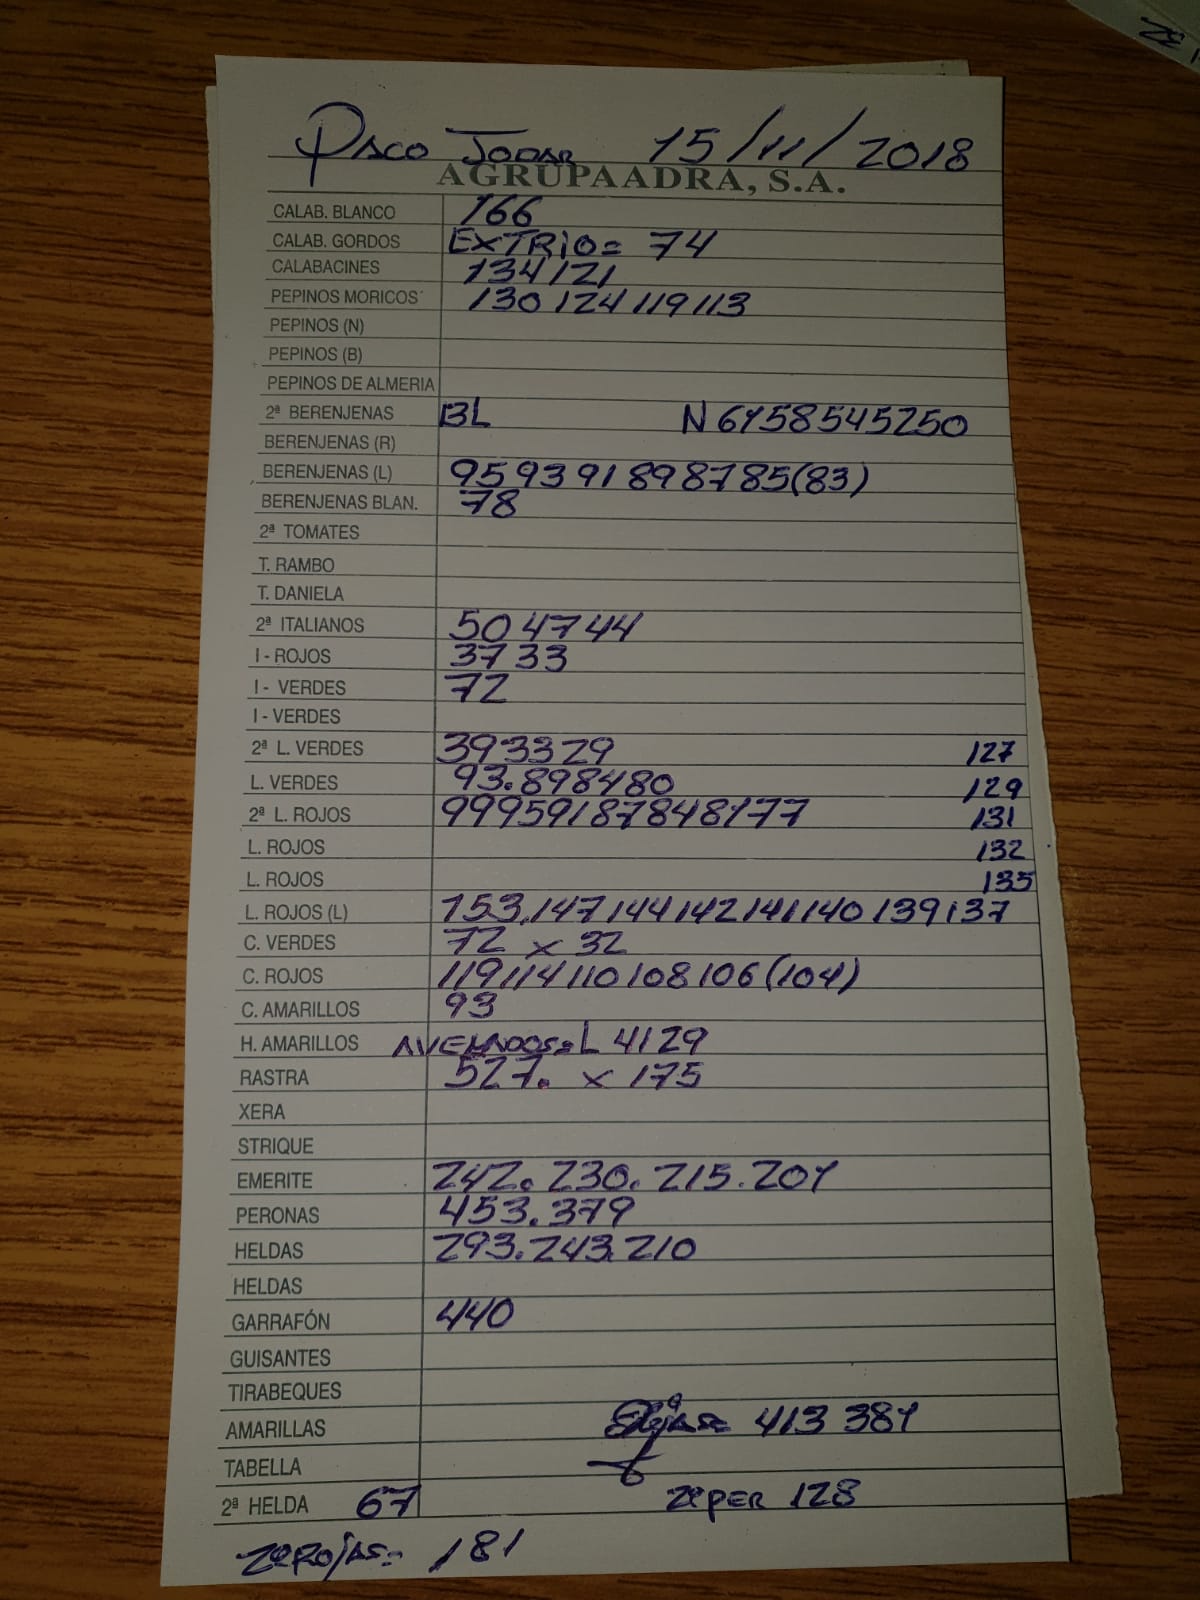 Paco Jodar 15/11/2018
AGRUPAADRA, S.A.
CALAB. BLANCO 166
CALAB. GORDOS EXTRIO= 74
CALABACINES 134 121
PEPINOS MORICOS 130 124 119 113
PEPINOS (N)
PEPINOS (B)
PEPINOS DE ALMERIA
2ª BERENJENAS BL N 61 58 54 52 50
BERENJENAS (R)
BERENJENAS (L) 95 93 91 89 87 85 (83)
BERENJENAS BLAN. 78
2ª TOMATES
T. RAMBO
T. DANIELA
2ª ITALIANOS 50 47 44
I - ROJOS 37 33
I - VERDES 72
I - VERDES
2ª L. VERDES 39 33 29 127
L. VERDES 93. 89 84 80 129
2ª L. ROJOS 99 95 91 87 84 81 77 131
L. ROJOS 132
L. ROJOS 135
L. ROJOS (L) 153. 147 144 142 141 140 139 137
C. VERDES 72 x 32
C. ROJOS 119 114 110 108 106 (104)
C. AMARILLOS 93
H. AMARILLOS L 41 29
RASTRA 527. x 175
XERA
STRIQUE
EMERITE 242. 230. 215. 201
PERONAS 453. 379
HELDAS 293. 243. 210
HELDAS
GARRAFÓN 440
GUISANTES
TIRABEQUES
AMARILLAS 413 381
TABELLA
2ª HELDA 67 2ª PER 128
2ª ROJAS= 181